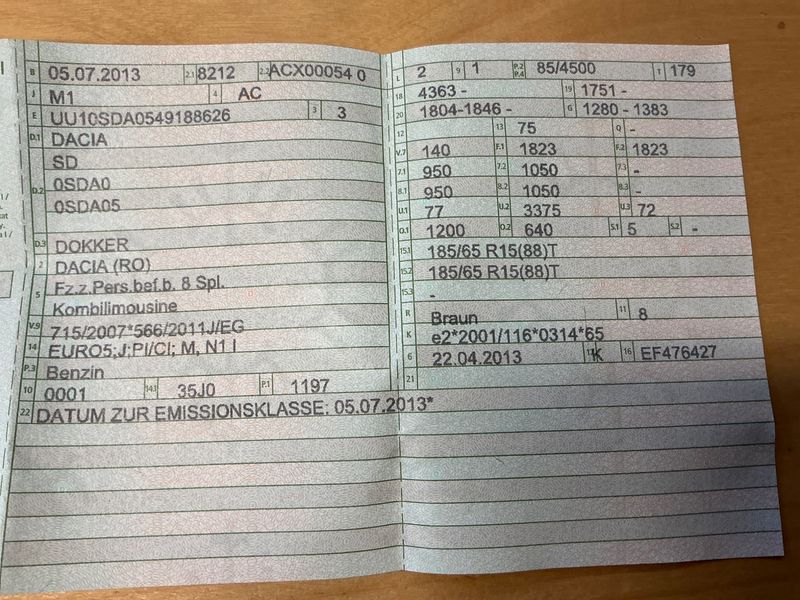 B 05.07.2013 2.1 8212 2.2 ACX00054 0
J M1 4 AC
E UU10SDA0549188626 3 3
D.1 DACIA
D.2 SD
0SDA0
0SDA05
D.3 DOKKER
2 DACIA (RO)
5 Fz.z.Pers.bef.b. 8 Spl.
Kombilimousine
V.9 715/2007*566/2011J/EG
14 EURO5;J;PI/CI; M, N1 I
P.3 Benzin
10 0001 14.1 35J0 P.1 1197
22 DATUM ZUR EMISSIONSKLASSE: 05.07.2013*
L 2 9 1 P.2 P.4 85/4500 T 179
18 4363 - 19 1751 -
20 1804-1846 - G 1280 - 1383
12 13 75 Q -
V.7 140 F.1 1823 F.2 1823
7.1 950 7.2 1050 7.3 -
8.1 950 8.2 1050 8.3 -
U.1 77 U.2 3375 U.3 72
O.1 1200 O.2 640 S.1 5 S.2 -
15.1 185/65 R15(88)T
15.2 185/65 R15(88)T
15.3 -
R Braun 11 8
K e2*2001/116*0314*65
6 22.04.2013 17 K 16 EF476427
21